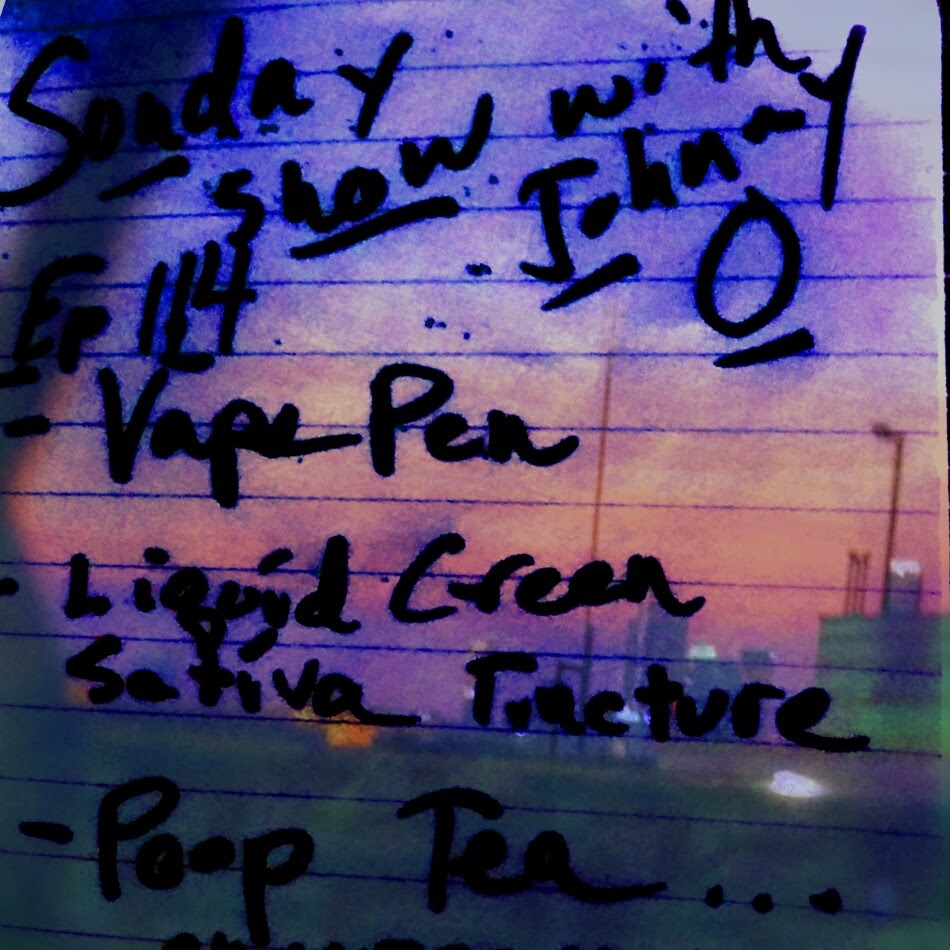 Sunday
Show with
Johnny
O
Ep 114
- Vape Pen
- Liquid Green
Sativa Tincture
- Poop Tea...